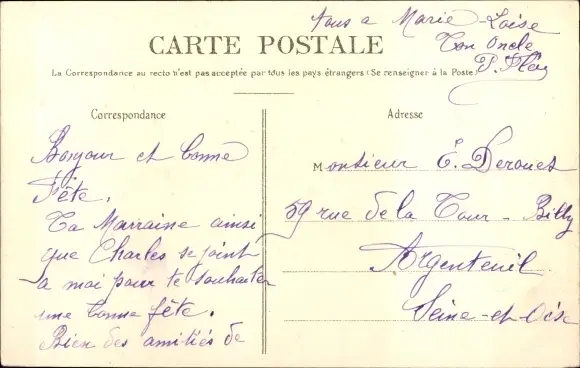 tous a Marie-Loise
Ton Oncle
CARTE POSTALE
La Correspondance au recto n'est pas acceptée par tous les pays étrangers (Se renseigner à la Poste)
Correspondance
Bonjour et bonne
Fête.
Ta Marraine ainsi
que Charles se joint
a moi pour te souhaiter
une bonne fête.
Bien des amitiés de
Adresse
Monsieur E. Derouet
59 rue de la Tour - Billy
Argenteuil
Seine-et-Oise